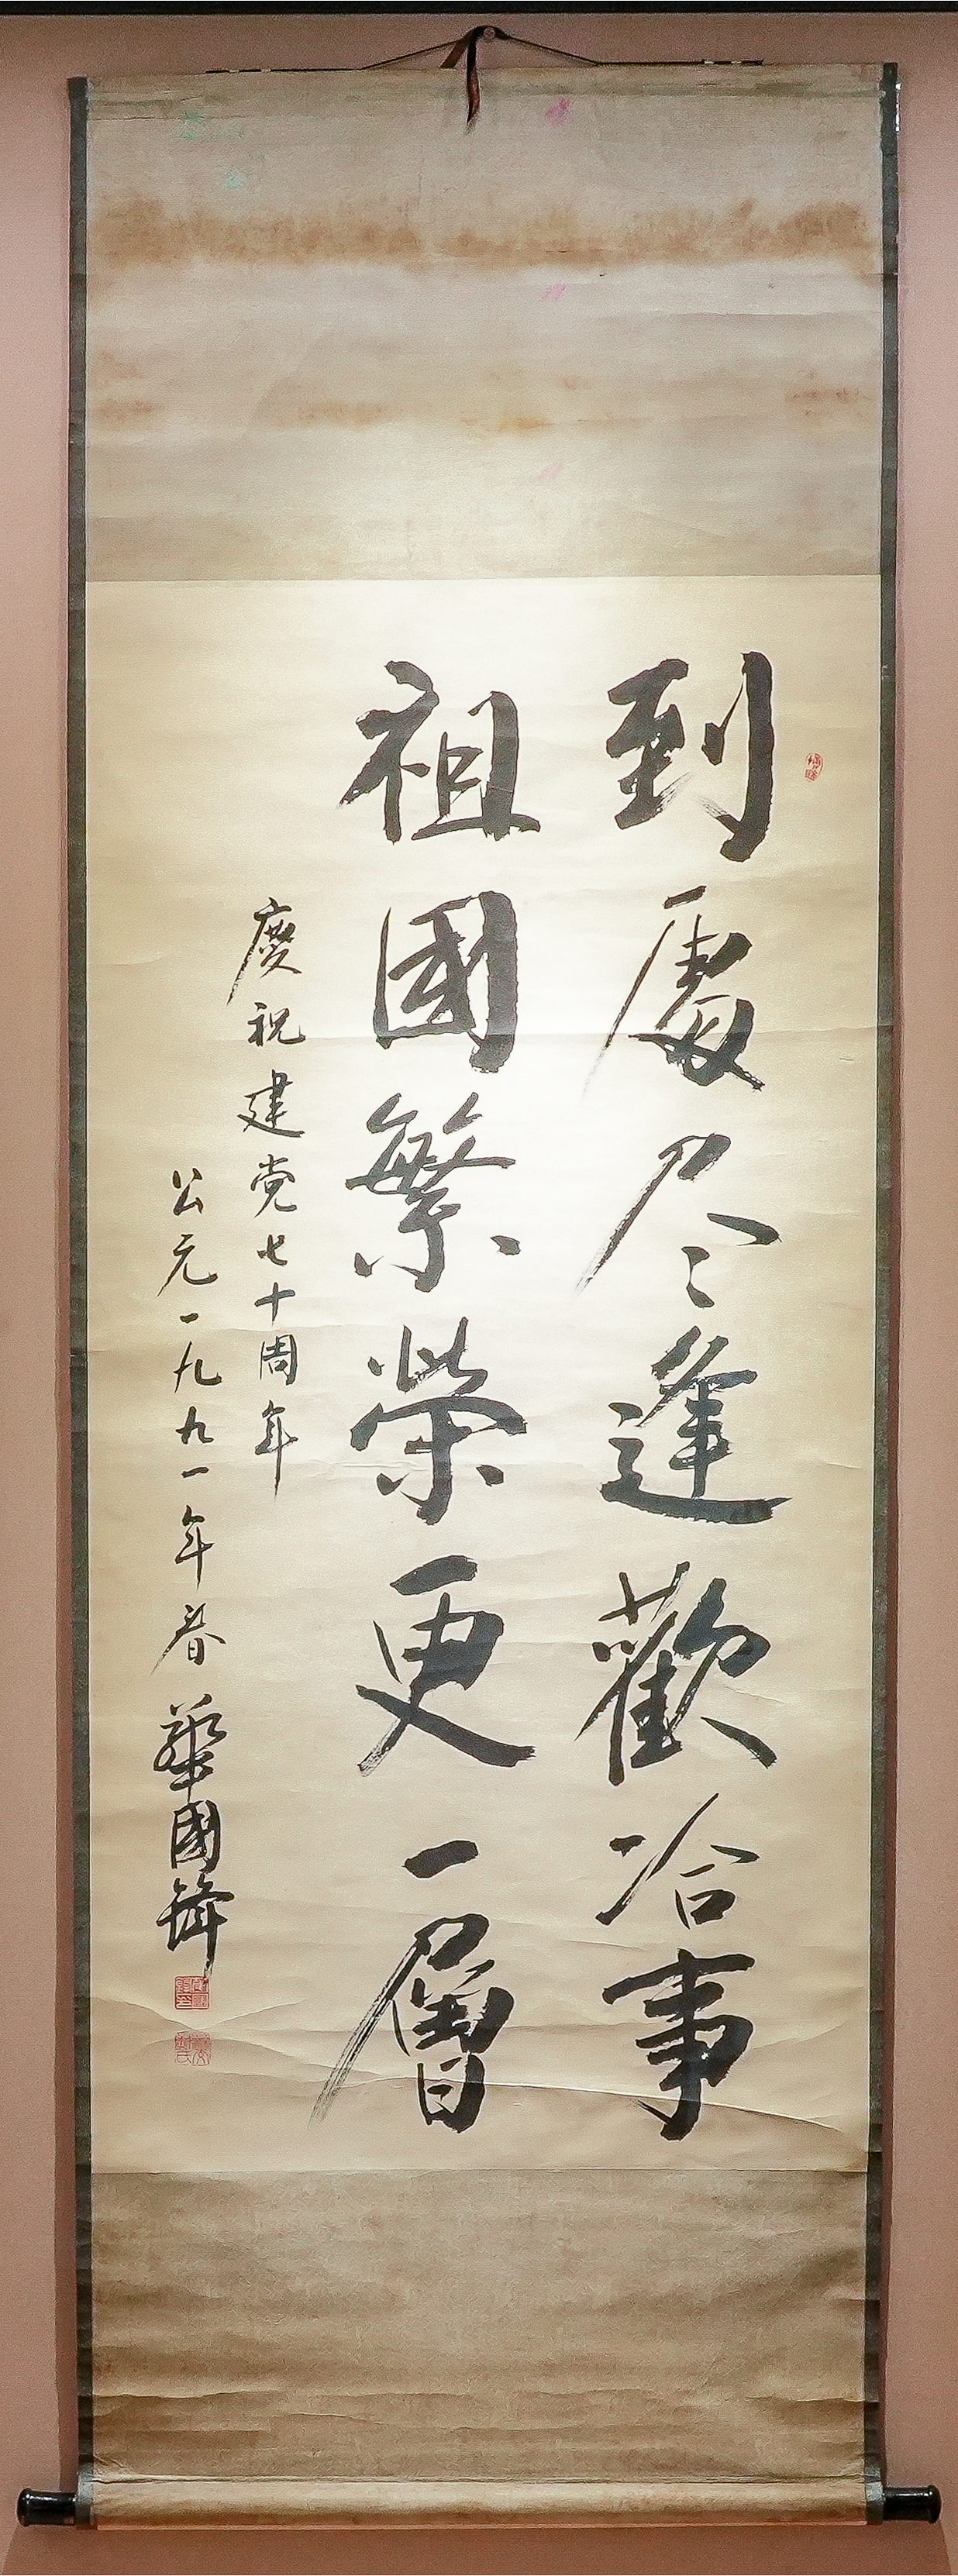 到處尽逢歡洽事
祖國繁榮更一層
慶祝建党七十周年
公元一九九一年春 華國鋒